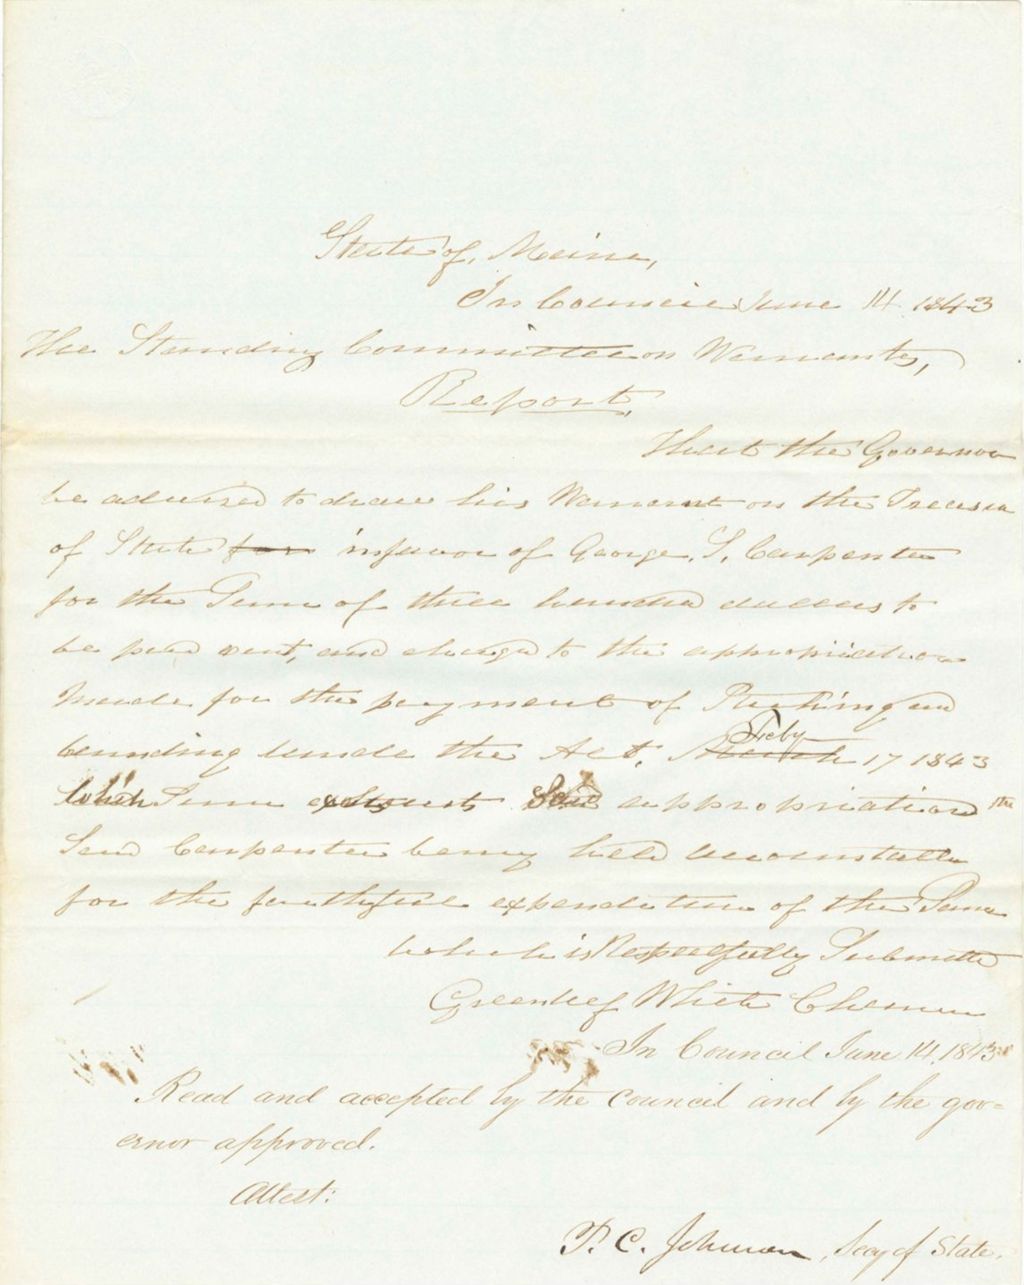 State of, Maine,
In Council June 14 1843
The Standing Committee on Warrants,
Report,
That the Governor
be advised to draw his Warrant on the Treasur
of State for in favor of George. S. Carpenter
for the Sum of three hundred dollars to
be paid out, and charged to the appropriation
Made for the payment of Stationery and
binding under the Act, March Feby 17 1843
Which Sum exhausts Said appropriation the
Said Carpenter being held accountable
for the faithful expenditure of the Same
Which is Respectfully Submitted
Greenlief White Chairman
In Council June 14, 1843
Read and accepted by the Council and by the gov=
ernor approved.
Attest:
P. C. Johnson, Secy of State.